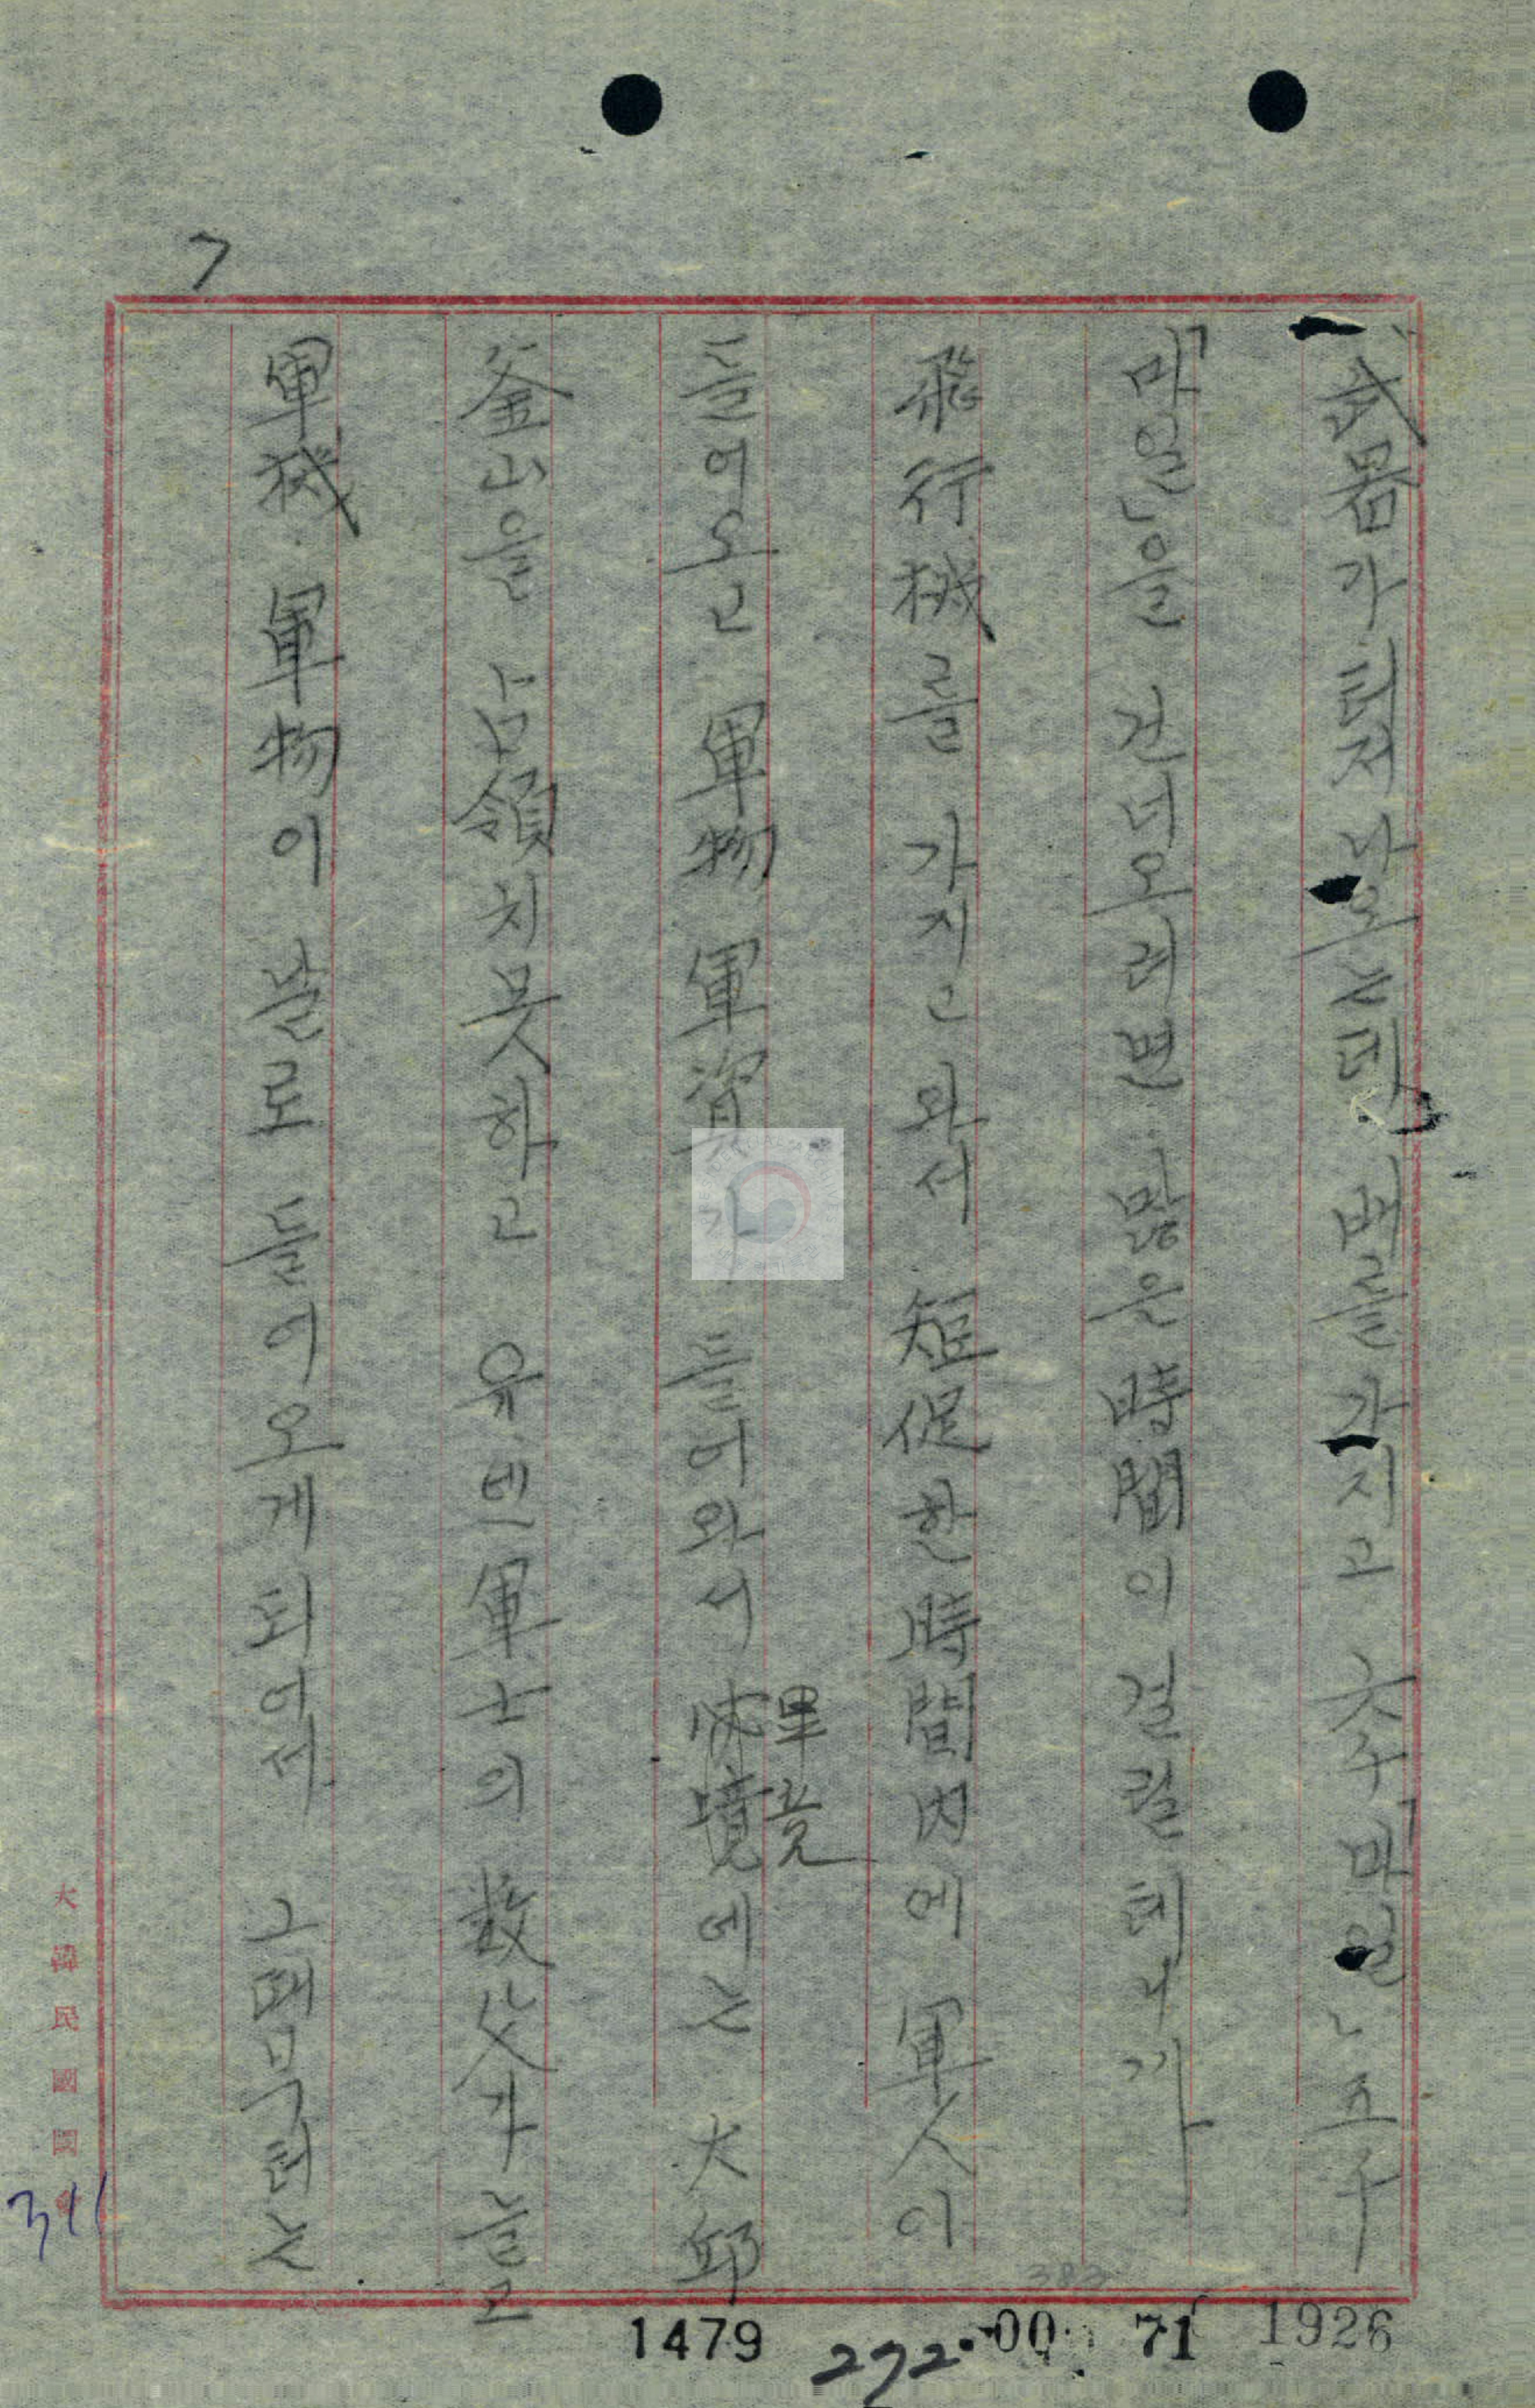 7
武器가 터져나오는데 배를 가지고 六千「마일」 五千
「마일」을 건너오려면 많은 時間이 걸릴테니까
飛行機를 가지고 와서 短促한時間內에 軍人이
들어오고 軍物 軍資가 들어와서 畢竟에는 大邱
釜山을 占領치못하고 유·엔軍士의 数父가늘고
軍械·軍物이 날로 들어오게되어서 그때부터는
大韓民國國會
311
383
1479 272·00 71 1926